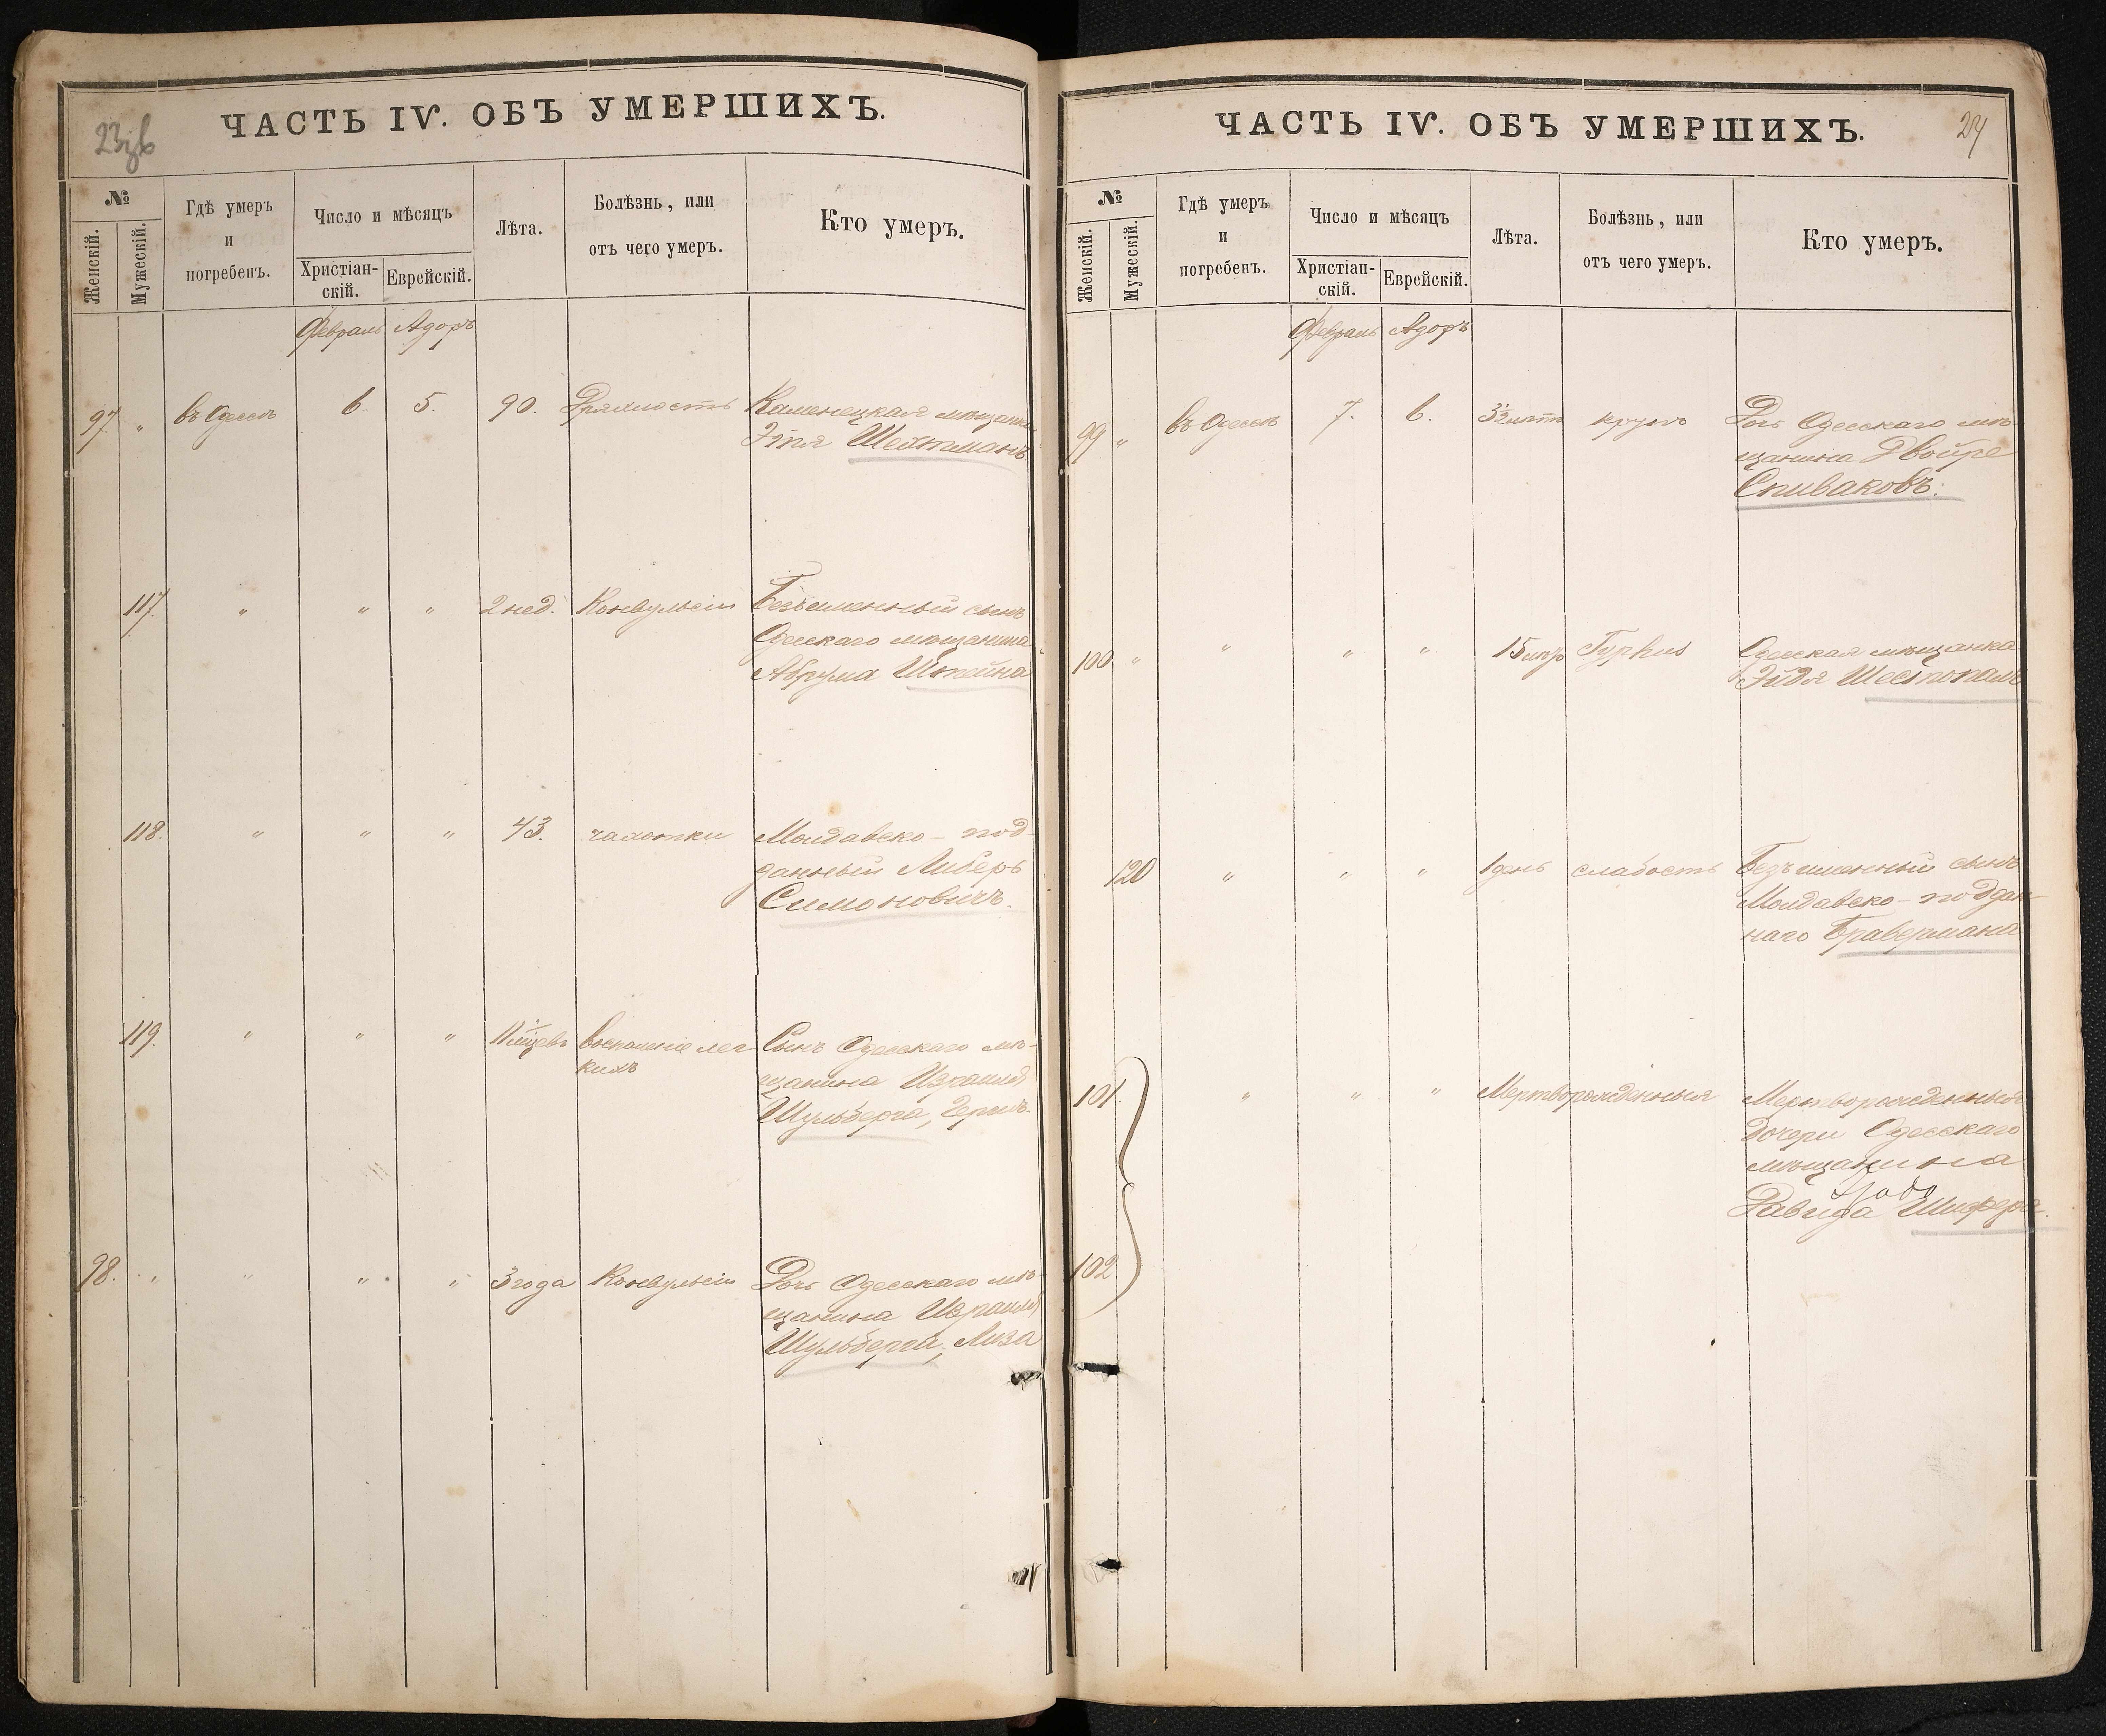 23зв
ЧАСТЬ IV. ОБЪ УМЕРШИХЪ.
№
Женскій.
Мужескій.
Гдѣ умеръ
и
погребенъ.
Число и мѣсяцъ
Христіан-
скій.
Еврейскій.
Лѣта.
Болѣзнь, или
отъ чего умеръ.
Кто умеръ.
Февраль Адоръ
97. " въ Одессѣ 6. 5. 90. Дряхлость Каменецкая мѣщанка
Этля Шехтманъ
117. " " " 2 нед. Конвульсіи Безъименный сынъ
Одесскаго мѣщанина
Абрума Штейна
118. " " " 43. чахотки Молдавско-под-
данный Либеръ
Симоновичъ.
119. " " " 11 мцевъ Воспаленіе лег- Сынъ Одесскаго мѣ-
кихъ щанина Израиля
Шульберга,
98. " " " " 3 года Конвульсіи Дочь Одесскаго мѣ-
щанина Израиля
Шульберга, Лиза
24
ЧАСТЬ IV. ОБЪ УМЕРШИХЪ.
№
Женскій.
Мужескій.
Гдѣ умеръ
и
погребенъ.
Число и мѣсяцъ
Христіан-
скій.
Еврейскій.
Лѣта.
Болѣзнь, или
отъ чего умеръ.
Кто умеръ.
Февраль Адоръ
99 " въ Одессѣ 7. 6. крупъ Дочь Одесскаго мѣ-
щанина Двойре
Спиваковъ.
100 " " " " 15 Typhus Одесская мѣщанка
Эйдя Шестопалъ
120 " " " 1 день слабость Безъименный сынъ
Молдавско-поддан-
наго Бравермана
101 " " " Мертворожденныя Мертворожденныя
дочери Одесскаго
мѣщанина
Давида Шифера.
102